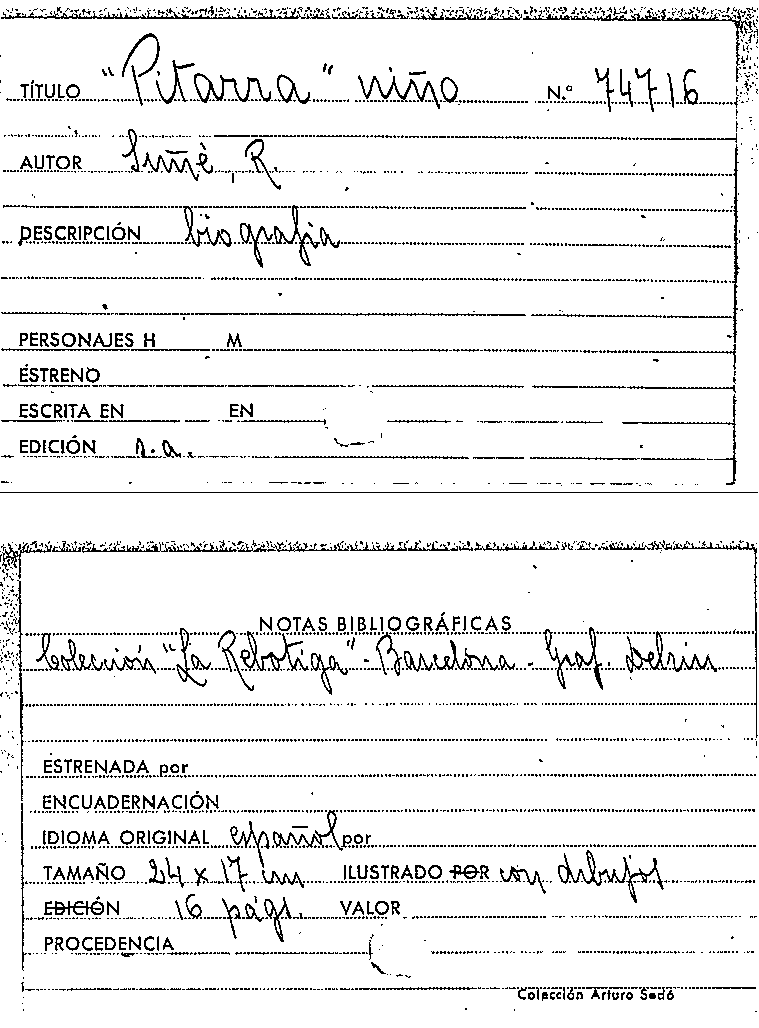 TÍTULO "Pitarra" niño N.º 74716
AUTOR Suñé, R.
DESCRIPCIÓN biografia
PERSONAJES H M
ESTRENO
ESCRITA EN EN
EDICIÓN s.a.
NOTAS BIBLIOGRÁFICAS
Colección "La Rebotiga" - Barcelona - Graf. Delriu
ESTRENADA por
ENCUADERNACIÓN
IDIOMA ORIGINAL español por
TAMAÑO 24 x 17 cm ILUSTRADO POR con dibujos
EDICIÓN 16 págs. VALOR
PROCEDENCIA
Colección Arturo Sedó